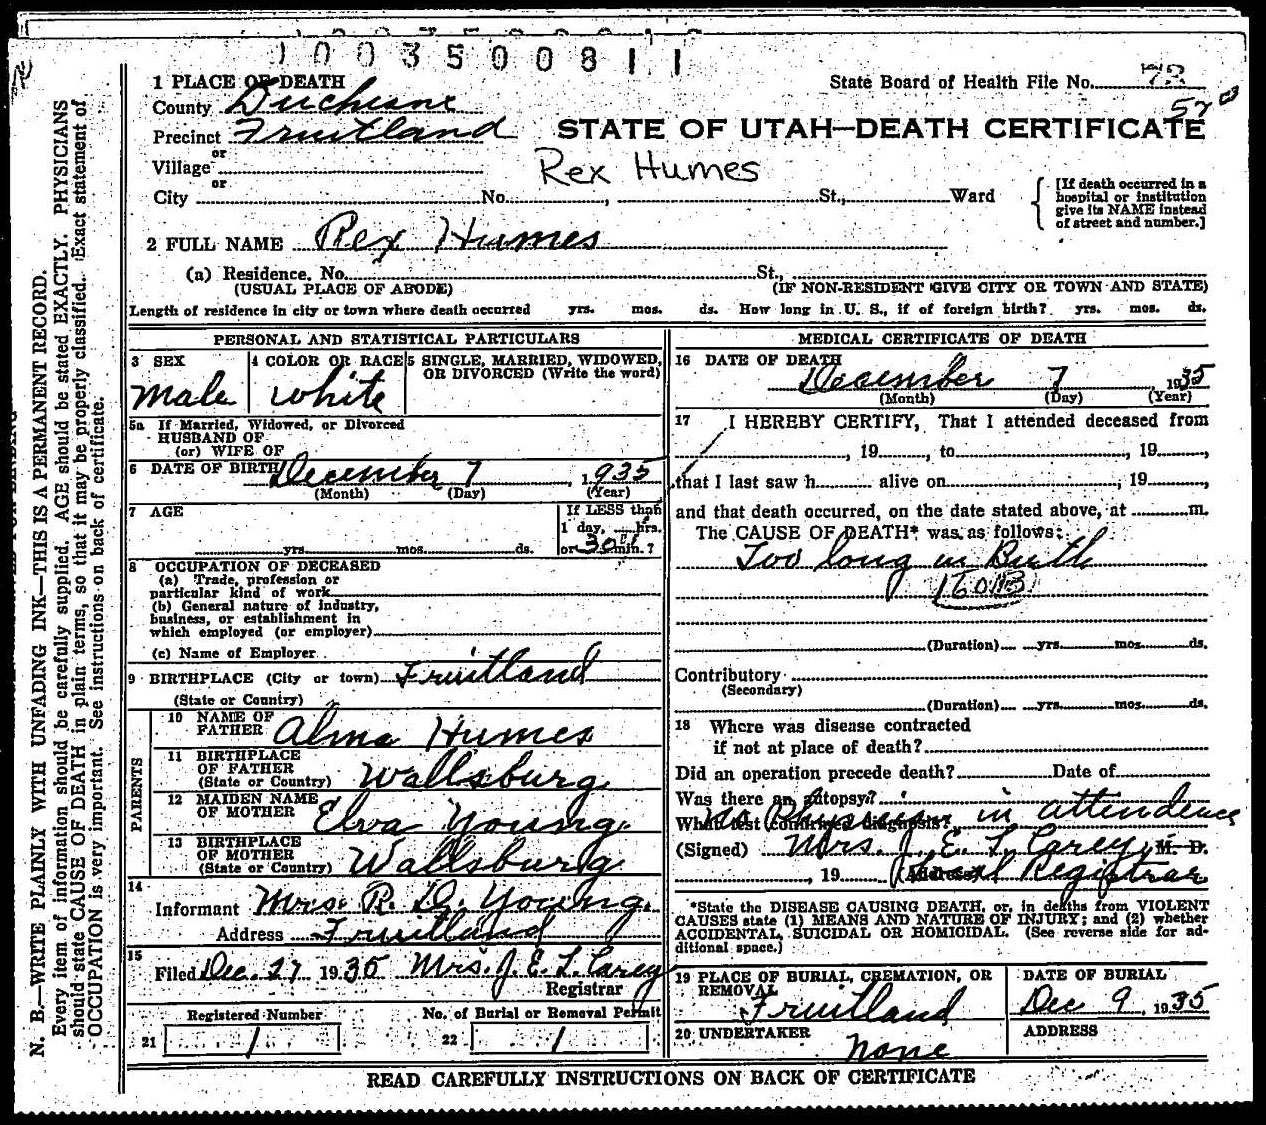 1003500811
1 PLACE OF DEATH
State Board of Health File No. 72
County Duchesne
Precinct Fruitland
STATE OF UTAH—DEATH CERTIFICATE
or
Village
Rex Humes
or
City No. , St., Ward
[If death occurred in a hospital or institution give its NAME instead of street and number.]
2 FULL NAME Rex Humes
(a) Residence. No. St.,
(USUAL PLACE OF ABODE) (IF NON-RESIDENT GIVE CITY OR TOWN AND STATE)
Length of residence in city or town where death occurred yrs. mos. ds. How long in U. S., if of foreign birth? yrs. mos. ds.
PERSONAL AND STATISTICAL PARTICULARS
3 SEX
male
4 COLOR OR RACE
white
5 SINGLE, MARRIED, WIDOWED,
OR DIVORCED (Write the word)
5a If Married, Widowed, or Divorced
HUSBAND OF
(or) WIFE OF
6 DATE OF BIRTH December 7, 1935
(Month) (Day) (Year)
7 AGE
yrs. mos. ds.
If LESS than
1 day, hrs.
or 30 min.?
8 OCCUPATION OF DECEASED
(a) Trade, profession or
particular kind of work
(b) General nature of industry,
business, or establishment in
which employed (or employer)
(c) Name of Employer
9 BIRTHPLACE (City or town) Fruitland
(State or Country)
PARENTS
10 NAME OF
FATHER Alma Humes
11 BIRTHPLACE
OF FATHER
(State or Country) Wallsburg
12 MAIDEN NAME
OF MOTHER Elva Young
13 BIRTHPLACE
OF MOTHER
(State or Country) Wallsburg
14
Informant Mrs. R. D. Young.
Address Fruitland
15
Filed Dec. 27 1935 Mrs. J. E. L. Carey
Registrar
Registered Number
21 1
No. of Burial or Removal Permit
22 1
MEDICAL CERTIFICATE OF DEATH
16 DATE OF DEATH
December 7, 1935
(Month) (Day) (Year)
17 I HEREBY CERTIFY, That I attended deceased from
, 19 , to , 19 ,
that I last saw h alive on , 19 ,
and that death occurred, on the date stated above, at m.
The CAUSE OF DEATH* was as follows:
Too long in Birth
160B
(Duration) yrs. mos. ds.
Contributory
(Secondary)
(Duration) yrs. mos. ds.
18 Where was disease contracted
if not at place of death?
Did an operation precede death? Date of
Was there an autopsy?
What test confirmed diagnosis?
no Physician in attendence
(Signed) Mrs. J. E. L. Carey, M. D.
, 19 (Address) Local Registrar
*State the DISEASE CAUSING DEATH, or, in deaths from VIOLENT
CAUSES state (1) MEANS AND NATURE OF INJURY; and (2) whether
ACCIDENTAL, SUICIDAL OR HOMICIDAL. (See reverse side for ad-
ditional space.)
19 PLACE OF BURIAL, CREMATION, OR
REMOVAL
Fruitland
DATE OF BURIAL
Dec 9, 1935
20 UNDERTAKER
none
ADDRESS
READ CAREFULLY INSTRUCTIONS ON BACK OF CERTIFICATE
N. B.—WRITE PLAINLY WITH UNFADING INK—THIS IS A PERMANENT RECORD.
Every item of information should be carefully supplied. AGE should be stated EXACTLY. PHYSICIANS
should state CAUSE OF DEATH in plain terms, so that it may be properly classified. Exact statement of
OCCUPATION is very important. See instructions on back of certificate.